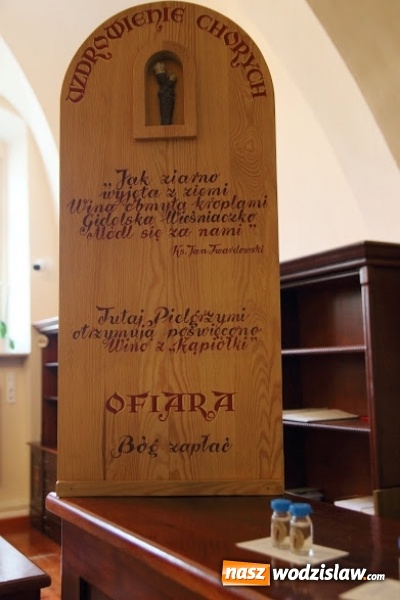 UZDROWIENIE CHORYCH
"Jak ziarno
wyjęta z ziemi
Wina obmyta kroplami
Gidelska Wieśniaczko
Módl się za nami"
Ks. Jan Twardowski
Tutaj Pielgrzymi
otrzymują poświęcone
Wino z „Kąpiółki"
OFIARA
Bóg zapłać
nasz wodzislaw.com